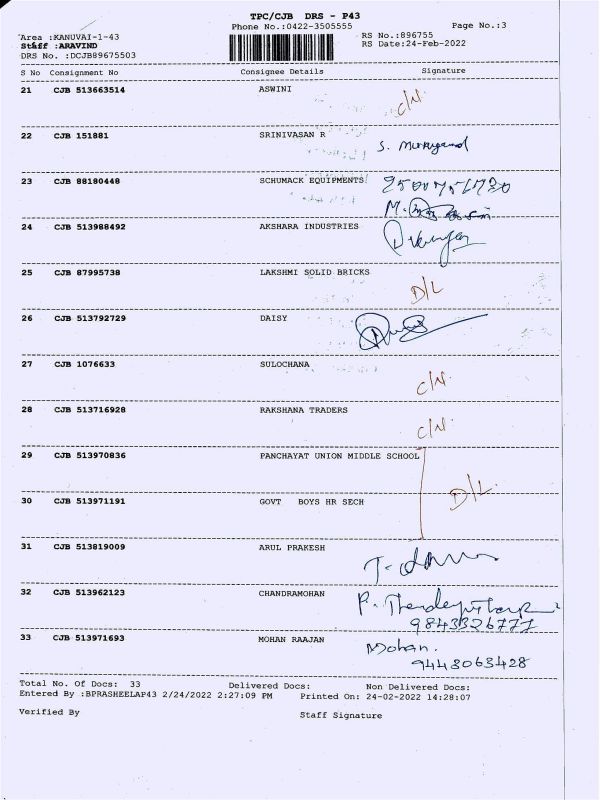 TPC/CJB DRS - P43
Phone No.:0422-3505555 Page No.:3
Area :KANUVAI-1-43 RS No.:896755
Staff :ARAVIND RS Date:24-Feb-2022
DRS No. :DCJB89675503
S No Consignment No Consignee Details Signature
21 CJB 513663514 ASWINI C/N.
22 CJB 151881 SRINIVASAN R S.
23 CJB 88180448 SCHUMACK EQUIPMENTS
M.
24 CJB 513988492 AKSHARA INDUSTRIES
25 CJB 87995738 LAKSHMI SOLID BRICKS D/L
26 CJB 513792729 DAISY
27 CJB 1076633 SULOCHANA C/N.
28 CJB 513716928 RAKSHANA TRADERS C/N.
29 CJB 513970836 PANCHAYAT UNION MIDDLE SCHOOL
D/L.
30 CJB 513971191 GOVT BOYS HR SECH
31 CJB 513819009 ARUL PRAKESH
32 CJB 513962123 CHANDRAMOHAN P.
9843326777
33 CJB 513971693 MOHAN RAAJAN Mohan.
9443063428
Total No. Of Docs: 33 Delivered Docs: Non Delivered Docs:
Entered By :BPRASHEELAP43 2/24/2022 2:27:09 PM Printed On: 24-02-2022 14:28:07
Verified By Staff Signature